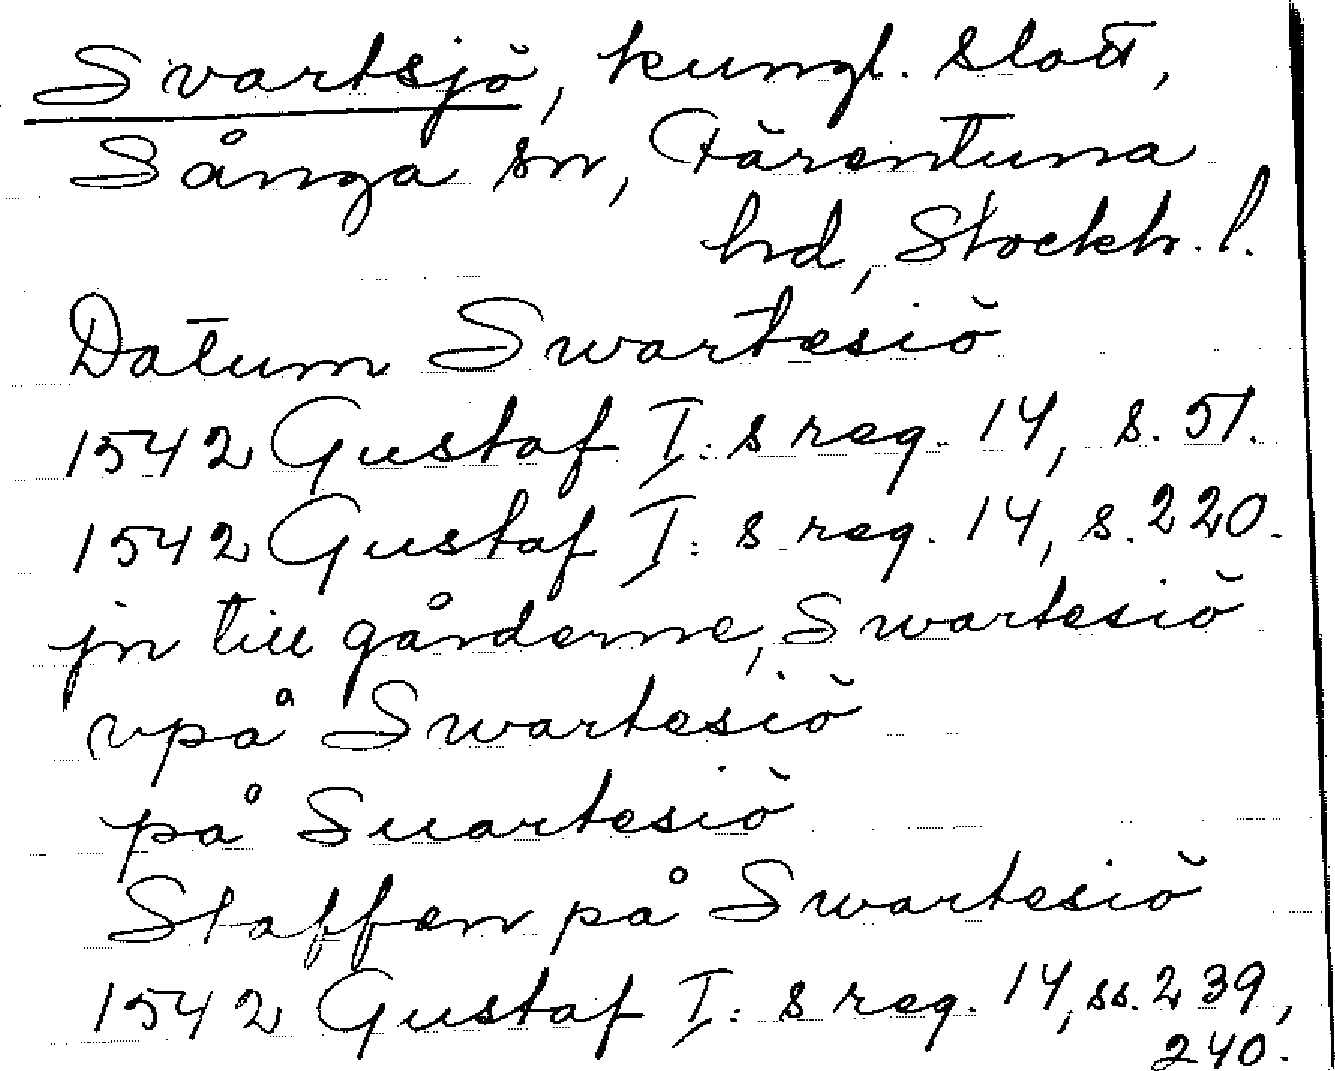 Svartsjö, kungl. slott,
Sånga sn, Färentuna
hd, Stockh. l.
Datum Swartesiö
1542 Gustaf I:s reg. 14, s. 51.
1542 Gustaf I:s reg. 14, s. 220.
jn till gårderne, Swartesiö
vpå Swartesiö
på Suartesiö
Staffen på Swartesiö
1542 Gustaf I:s reg. 14, ss. 239,
240.